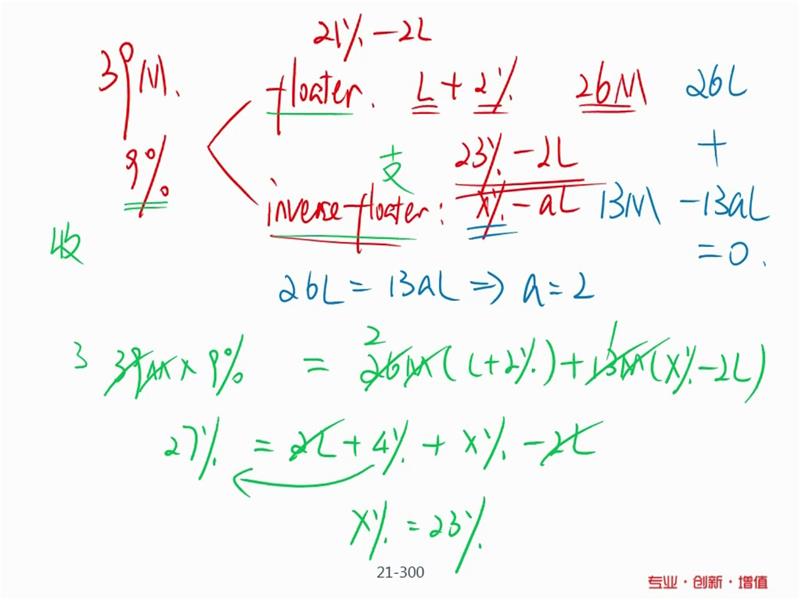 21% - 2L
39M. floater. L + 2% 26M 26L
9% 支 23% - 2L +
inverse floater: x% - aL 13M - 13aL
收 = 0.
26L = 13aL ⇒ a = 2
3 39M × 9% = 2 26M (L+2%) + 1 13M (X% - 2L)
27% = 2L + 4% + X% - 2L
X% = 23%
21-300
专业·创新·增值